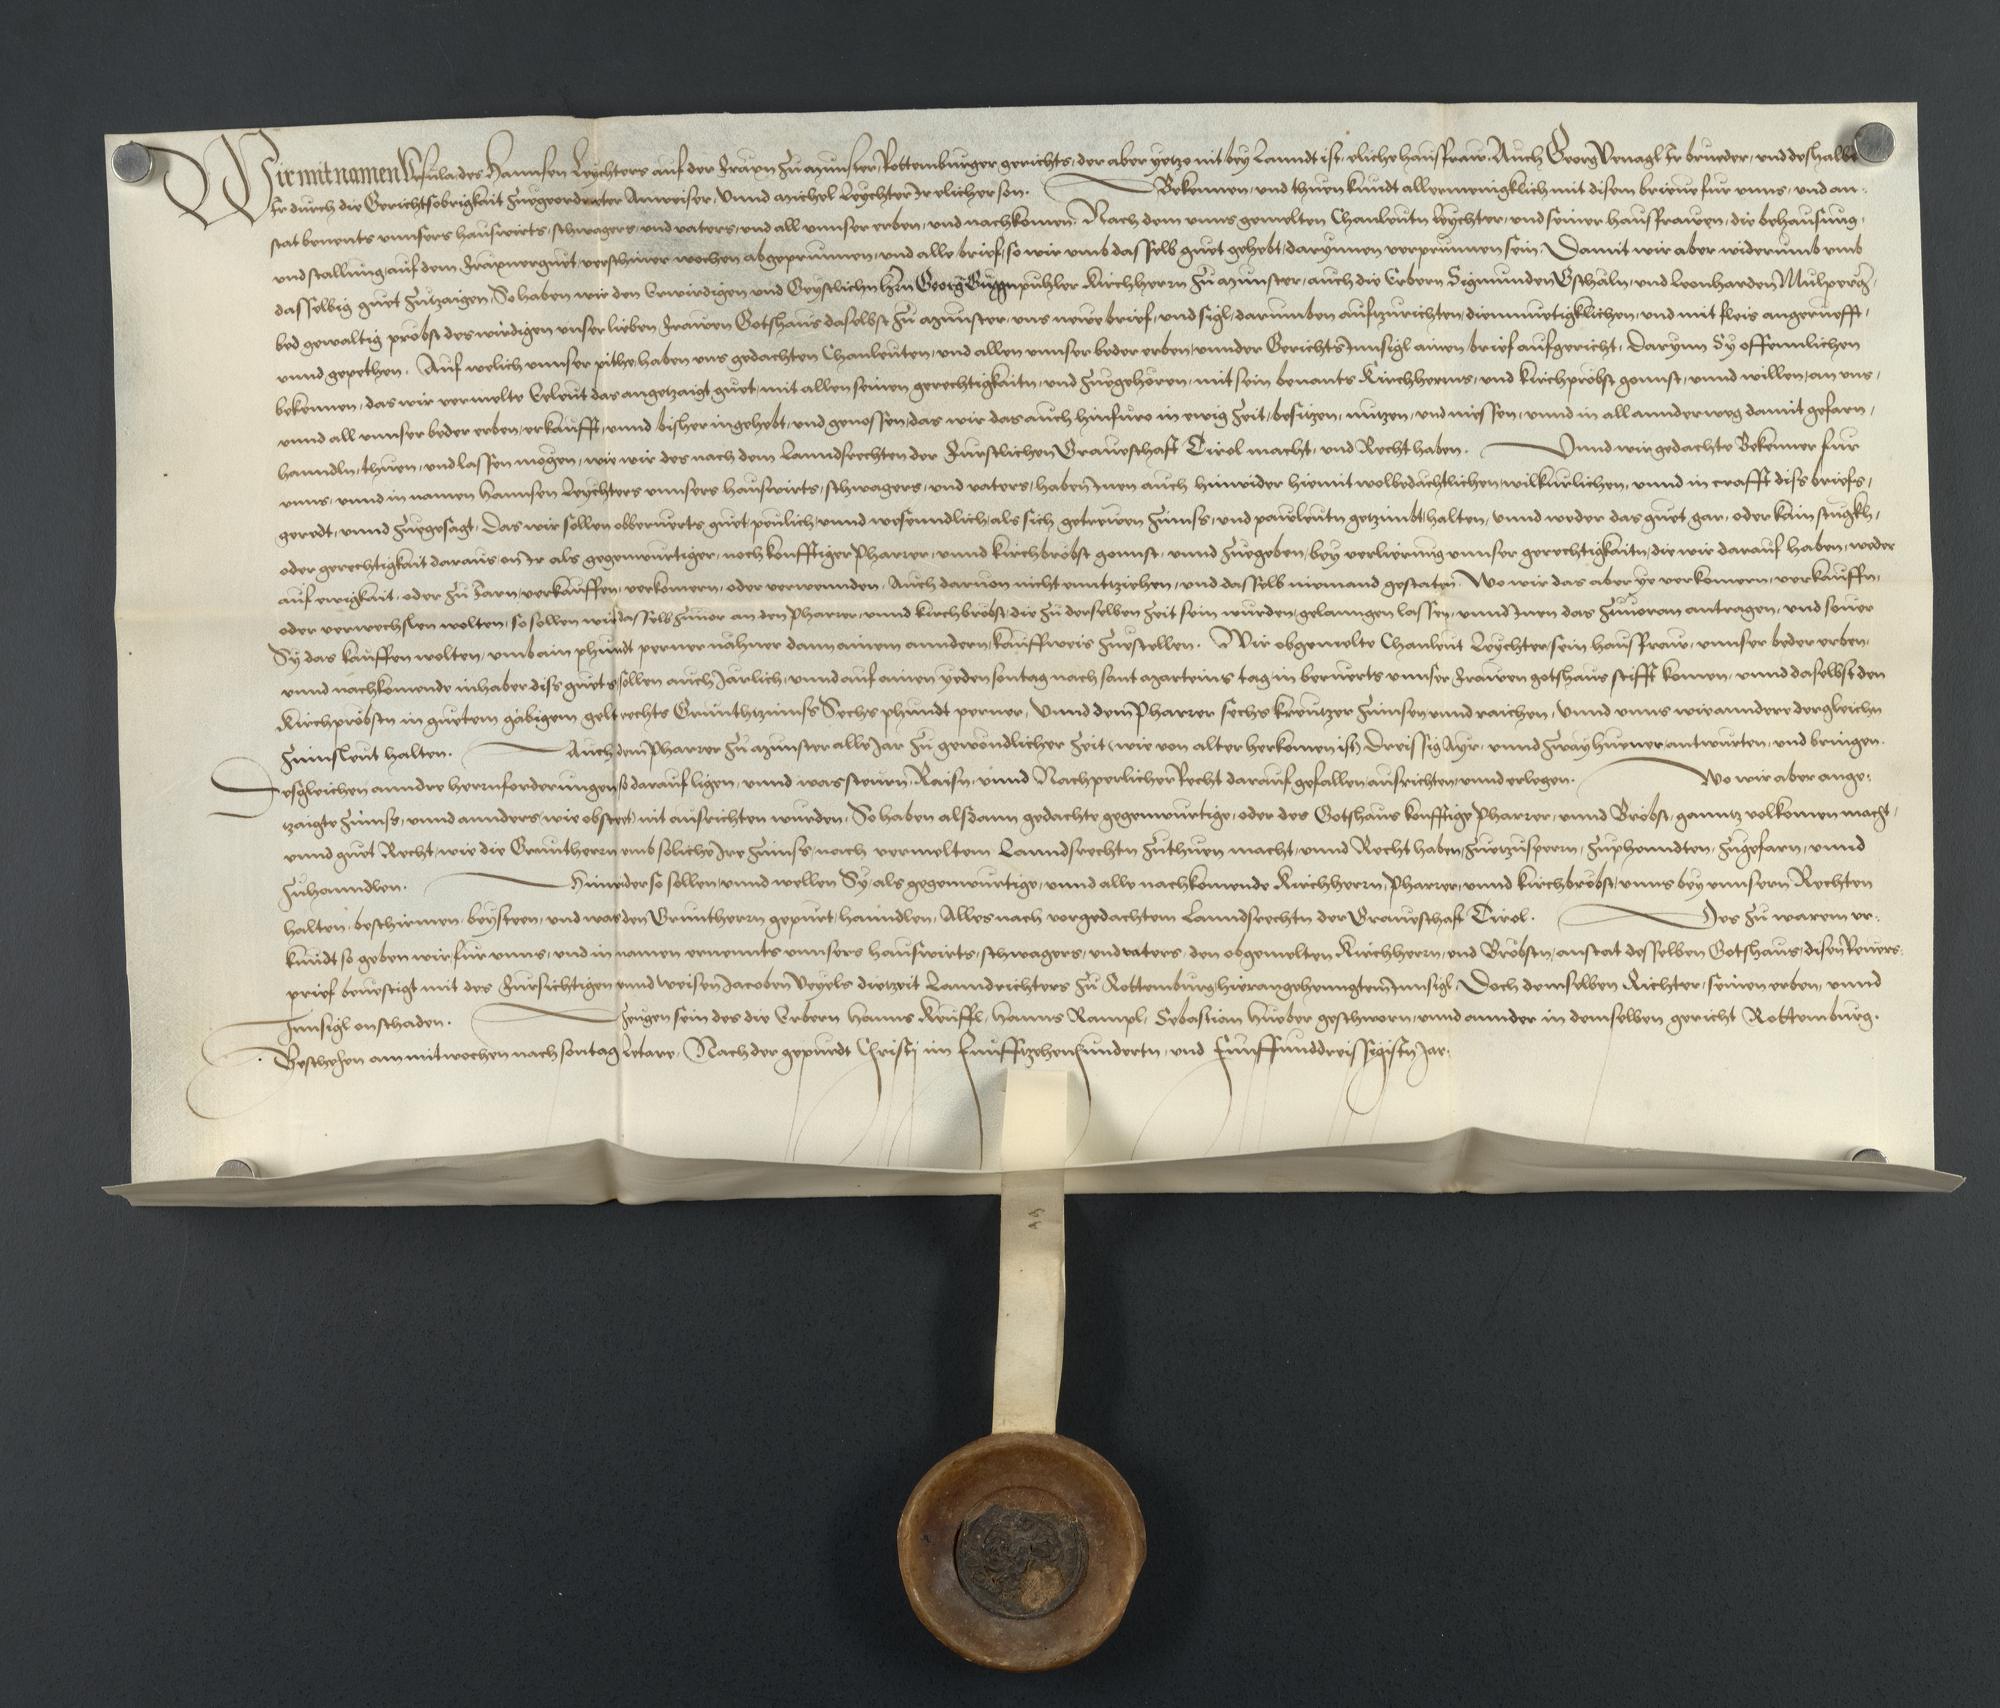 Wir mit namen Ursula, des Hannsen Leychters auf der Fraxn zu Munster, Rottemburger gerichts, der aber yetzo nit bey Lanndt ist, eliche hausfraw, Auch Georg Venagl Ir brueder, und deshalbn
Ir durch die Gerichtsobrigkait zuegeordneter Anweiser, Unnd Michel Leychter Ir elicher son. Bekennen, und thuen kundt allermenigklich mit disem brieve fur unns, und an-
stat benents unnsers hauswirts, schwagers, und vaters, und all unnser erben, und nachkomen, Nach dem unns gemelten Ehanleutn Leychter, und seiner hausfrawen, die behausung,
und stallung, auf dem Fraxnerguet, verschiner wochen abgeprunnen, und alle brief, so wir umb dasselb guet gehebt, darynnen verprunnen sein, Damit wir aber widerumb umb
dasselbig guet zutzaigen, So haben wir den Erwirdigen und Geystlichn Hern Georg Guggnpuhler Kirchherrn zu Munster, auch die Erbern Sigmunden Gschäln, und Leonharden Mulperg,
bed gewaltig probst des wirdigen unser lieben Frawen Gotshaus daselbst zu Munster, uns newe brief, und sigl, darumben auftzurichten, diemuetigklichen, und mit fleis angeruefft,
unnd gepethen. Auf welich unnser pithe, haben uns gedachten Ehanleuten, und allen unnser beder erben, unnder Gerichts Innsigl ainen brief aufgericht, Darynn Sy offennlichen
bekennen, das wir vermelte Eeleut das angetzaigt guet, mit allen seinen gerechtigkaitn, und zuegehören, mit sein benants Kirchherrns, und kirchpröbst gonnst, unnd willen, an uns,
unnd all unnser beder erben, erkaufft, unnd bisher ingehebt, und genossen, das wir das auch hinfuro in ewig zeit, besitzen, nutzen, und niessen, unnd in all annderweg damit gefarn,
hanndln, thuen, und lassen mögen, wie wir des nach dem Lanndsrechten der Furstlichen Graveschaft Tirol macht, und Recht haben. Unnd wir gedachte Bekenner fur
unns, unnd in namen Hannsen Leychters unnsers hauswirts, schwagers, und vaters, haben Inen auch hinwider hiemit wolbedächtlichen, wilkurlichen, unnd in crafft diss briefs,
geredt, unnd zuegesagt, Das wir sollen obberuerts guet, peulich, unnd wesenndlich, als sich getrewen zinns, und pawleutn getzimbt, halten, Unnd weder das guet gar, oder kain stugkh,
oder gerechtigkait daraus, on Ir als gegenwurtiger, noch konfftiger Pharrer, unnd kirchbröbst gonnst, unnd zuegeben, bey verlierung unnser gerechtigkaitn, die wir darauf haben, weder
auf ewigkait, oder zu Jarn, verkauffen, verkomern, oder verwennden, Auch darvon nicht enntziehen, und dasselb niemand gestaten. Wo wir das aber ye verkomern, verkauffn,
oder verwechslen wolten, so sollen wir dasselb zuvor an den Pharrer, unnd kirchbröbst, die zu derselben zeit sein wurden, gelanngen lassen, unnd Inen das zuvoran antragen, und sover
Sy das kauffen wolten, umb ain phundt perner nähner dann ainem anndern, kauffweis zuestellen. Wir obgemelte Ehanleut Leychter, sein hausfraw, unnser beder erben,
unnd nachkomende inhaber diss guets, sollen auch Järlich, unnd auf ainen yeden sontag nach sant Marteins tag, in beruerts unnser Frawen gotshaus stifft komen, unnd daselbst den
Kirchpröbsten in guetem gäbigem gelt, rechts Grunthtzinnss Sechs phundt perner, Unnd dem Pharrer sechs kreutzer zinnsen unnd raichen, Unnd unns wie anndere dergleichn
zinnsleut halten. Auch dem Pharrer zu Munster alle Jar zu gewondlicher zeit (wie von alter herkomen ist) Dreissig Ayr, unnd zway huener, antwurten, und bringen.
Desgleichen anndre herrnforderungen, so darauf ligen, unnd was steurn, Raisn, unnd Nachperlicher Recht darauf gefallen, ausrichten, unnd erlegen. Wo wir aber ange-
tzaigte zinnss, unnd annders (wie obsteet) nit ausrichten wurden, So haben alsdann gedachte gegenwurtige, oder des Gotshaus konfftige Pharrer, unnd Bröbst, ganntz volkomen macht,
unnd guet Recht, wie die Gruntherrn umb soliche Ire zinnss, nach vermeltem Lanndsrechtn zuthuen macht, unnd Recht haben, zuetzusperrn, zuphenndten, zugefarn, unnd
zuhanndlen. Hinwider so sollen, unnd wellen Sy, als gegenwurtige, unnd alle nachkomende Kirchherrn, Pharrer, unnd kirchbröbst, unns bey unnsern Rechten
halten, beschirmen, beysteen, und was den Gruntherrn gepurt, hanndlen, Alles nach vorgedachtem Lanndsrechtn der Graveschaft Tirol. Des zu warem ur-
kundt so geben wir, fur unns, und in namen ernennts unnsers hauswirts, schwagers, und vaters, den obgemelten Kirchherrn, und Bröbstn, anstat desselben Gotshaus, disen Revers-
prief bevestigt mit des Fursichtigen unnd weisen Jacoben Veyels dietzeit Lanndrichters zu Rottemburg, hieranngehenngtem Innsigl, Doch demselben Richter, seinen erben, unnd
Innsigl on schaden. Zeugen sein des die Erbern Hanns Keuffl, Hanns Rampl, Sebastian Hueber geschworn, unnd annder in demselben gericht Rottemburg.
Beschehen am mitwochen nach sontag Letare, Nach der gepurdt Christj im Funfftzehenhundertn, und Funffunddreissigistn Jar.